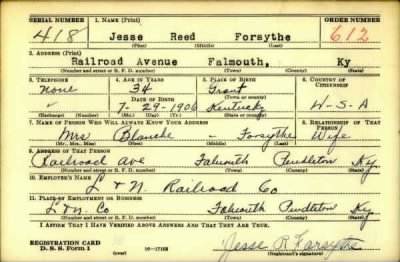 SERIAL NUMBER 1. NAME (Print) ORDER NUMBER
418 Jesse Reed Forsythe 612
(First) (Middle) (Last)
2. ADDRESS (Print)
Railroad Avenue Falmouth, Ky
(Number and street or R. F. D. number) (Town) (County) (State)
3. TELEPHONE 4. AGE IN YEARS 5. PLACE OF BIRTH 6. COUNTRY OF CITIZENSHIP
None 34 Grant
DATE OF BIRTH (Town or county)
7-29-1906 Kentucky U-S-A
(Exchange) (Number) (Mo.) (Day) (Yr.) (State or country)
7. NAME OF PERSON WHO WILL ALWAYS KNOW YOUR ADDRESS 8. RELATIONSHIP OF THAT PERSON
Mrs Blanche - Forsythe Wife
(Mr., Mrs., Miss) (First) (Middle) (Last)
9. ADDRESS OF THAT PERSON
Railroad ave Falmouth Pendleton Ky.
(Number and street or R. F. D. number) (Town) (County) (State)
10. EMPLOYER'S NAME
L & N. Railroad Co
11. PLACE OF EMPLOYMENT OR BUSINESS
L & N. Co Falmouth Pendleton Ky
(Number and street or R. F. D. number) (Town) (County) (State)
I AFFIRM THAT I HAVE VERIFIED ABOVE ANSWERS AND THAT THEY ARE TRUE.
REGISTRATION CARD
D. S. S. Form 1 (over) 16-17105 Jesse R Forsythe
(Registrant's signature)